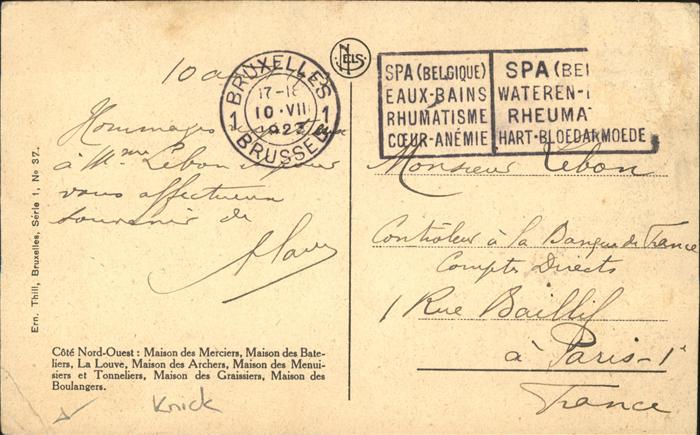 10 a
BRUXELLES
17-18
10·VII
1923
1 1
BRUSSEL
NELS
SPA (BELGIQUE)
EAUX-BAINS
RHUMATISME
CŒUR-ANÉMIE
SPA (BEL
WATEREN-
RHEUMAT
HART·BLOEDARMOEDE
Hommages
à Mme Lebon et pour
vous affectueux
souvenir de
Monsieur Lebon
Contrôleur à la Banque de France
Comptes Directs
1 Rue Baillif
à Paris-1e
France
Ern. Thill, Bruxelles, Série 1, No 37.
Côté Nord-Ouest : Maison des Merciers, Maison des Bate-
liers, La Louve, Maison des Archers, Maison des Menui-
siers et Tonneliers, Maison des Graissiers, Maison des
Boulangers.
Knick